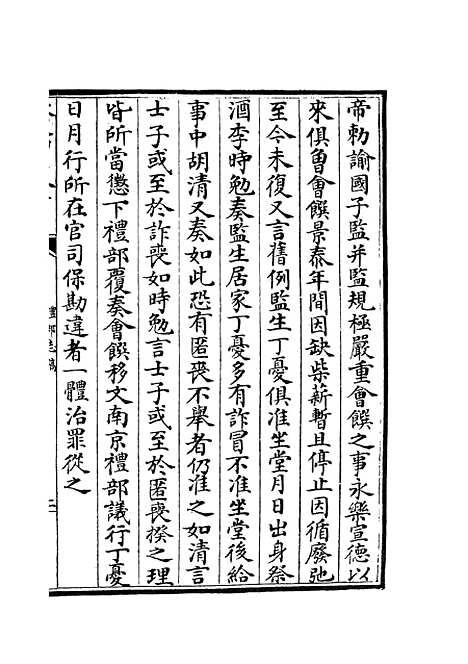 帝勅諭國子監并監規極嚴重會饌之事永樂宣德以
來俱曾會饌景泰年間因缺柴薪暫且停止因循廢弛
至今未復又言舊例監生丁憂俱准坐堂月日出身祭
酒李時勉奏監生居家丁憂多有詐冒不准坐堂後給
事中胡清又奏如此恐有匿喪不舉者仍准之如清言
士子或至於詐喪如時勉言士子或至於匿喪揆之理
皆所當懲下禮部覆奏會饌移文南京禮部議行丁憂
日月行所在官司保勘違者一體治罪從之
禮部志稿